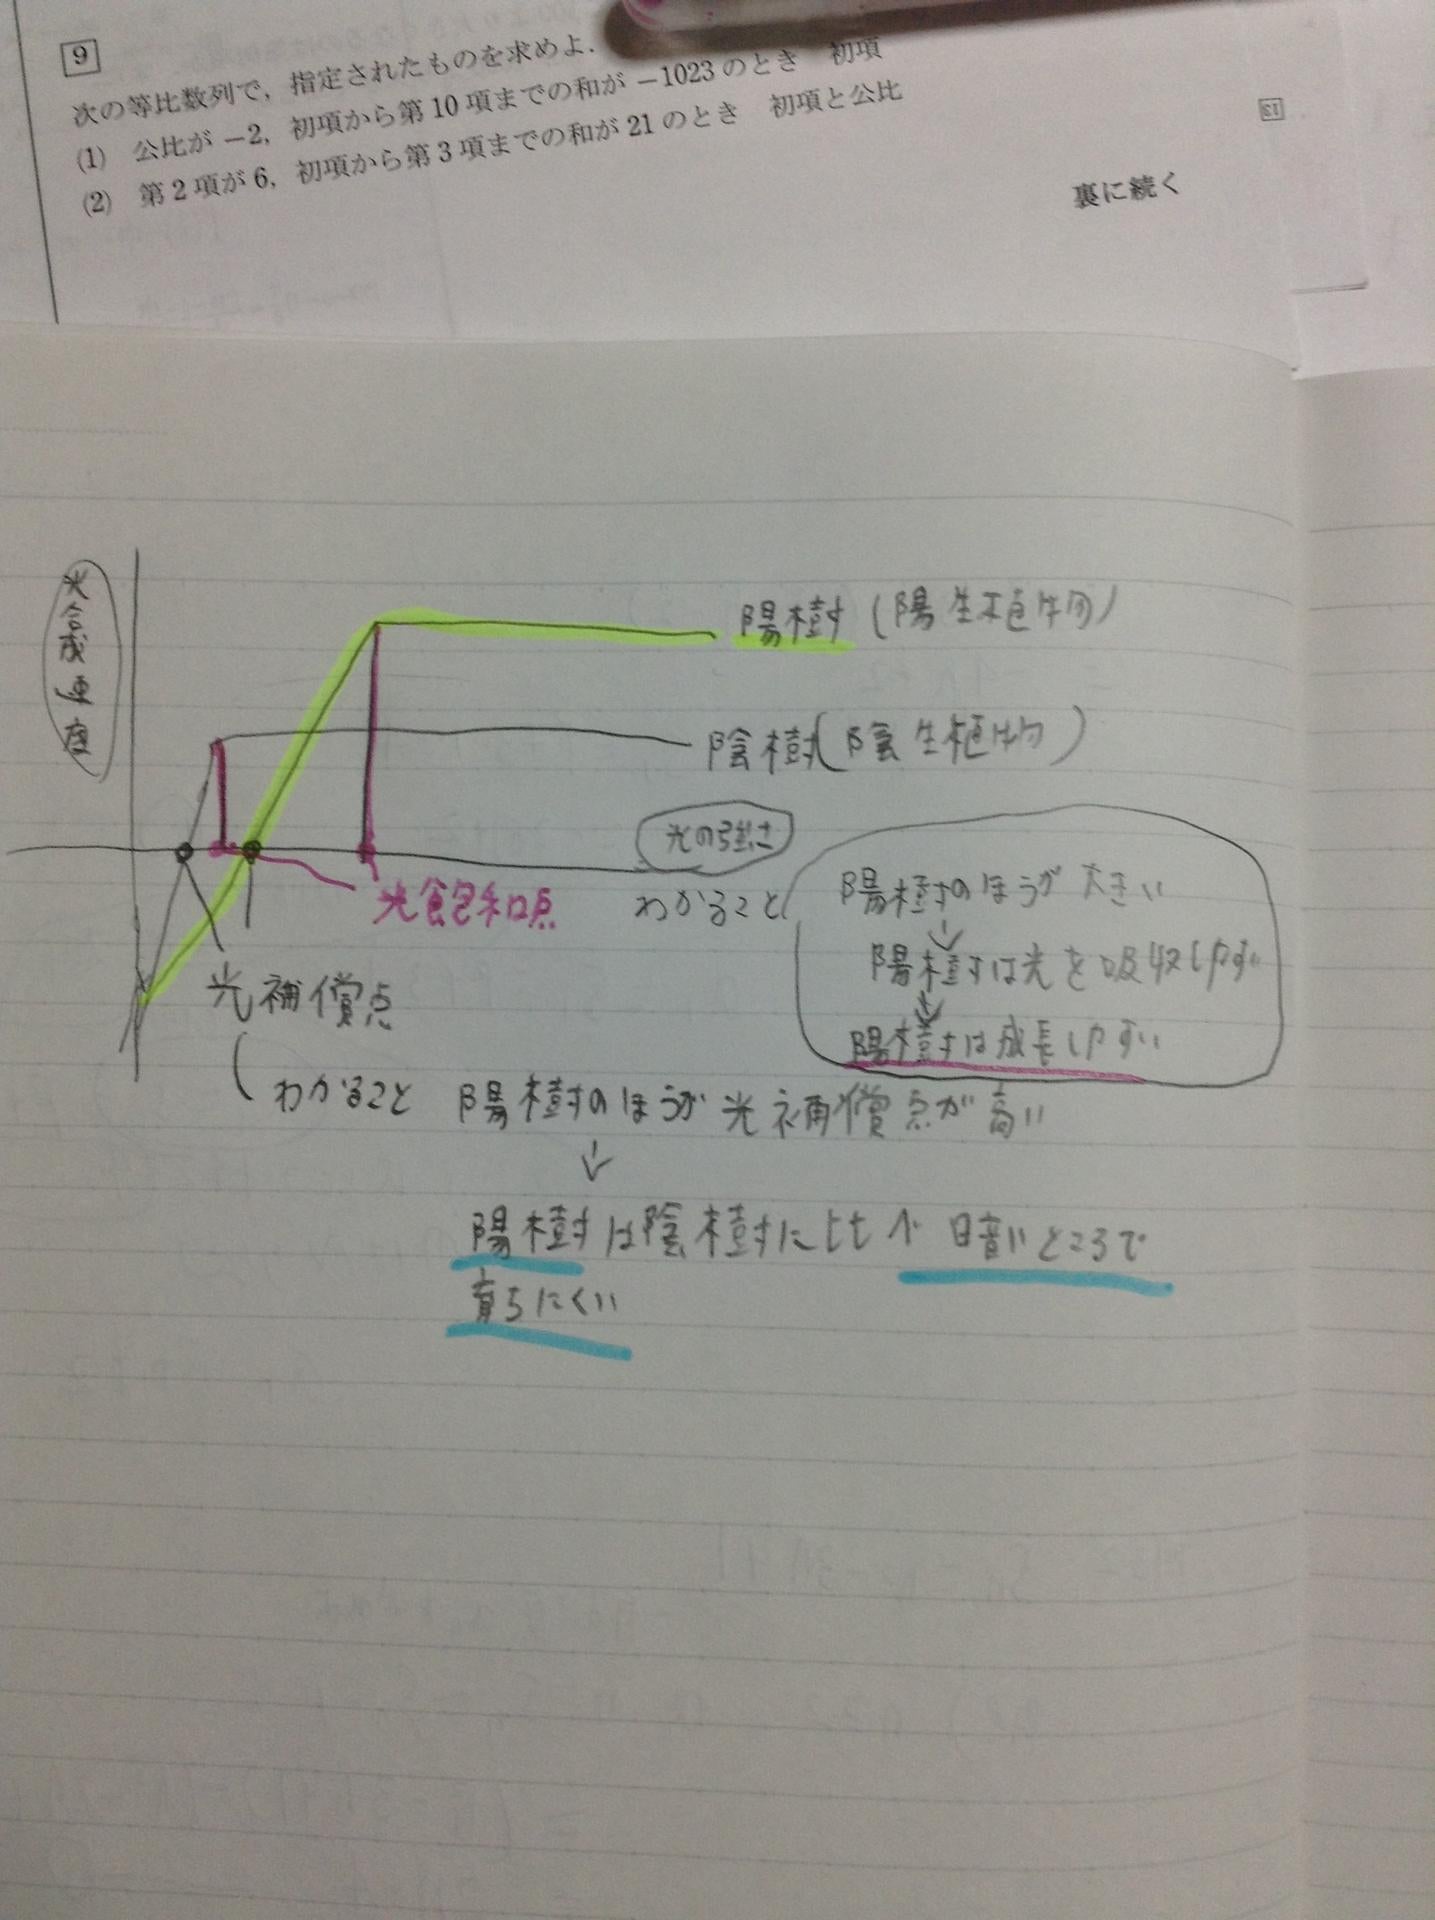 9
次の等比数列で，指定されたものを求めよ．
(1) 公比が −2，初項から第 10 項までの和が −1023 のとき 初項
(2) 第 2 項が 6，初項から第 3 項までの和が 21 のとき 初項と公比
裏に続く
13
光合成速度
陽樹 (陽生植物)
陰樹 (陰生植物)
光の強さ
光飽和点
わかること
陽樹のほうが大きい
↓
陽樹は光を吸収しやすい
↓
陽樹は成長しやすい
光補償点
わかること 陽樹のほうが光補償点が高い
↓
陽樹は陰樹に比べ 暗いところで
育ちにくい